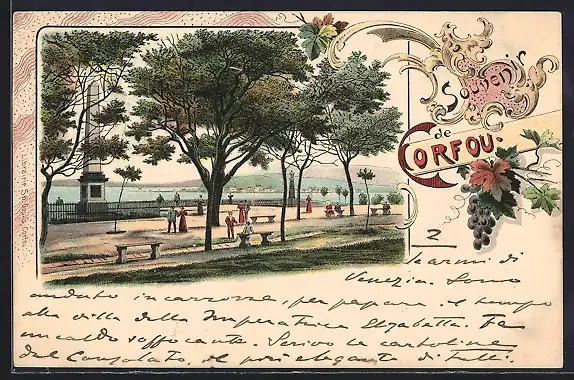 Souvenir
de
CORFOU
2
karmi di
Venezia. Sono
andato in carrozza, per passare il tempo
alla villa della Imperatrice Elisabetta. Fa
un caldo soffocante. Scrivo la cartoline
dal Consolato, il più elegante di tutti.